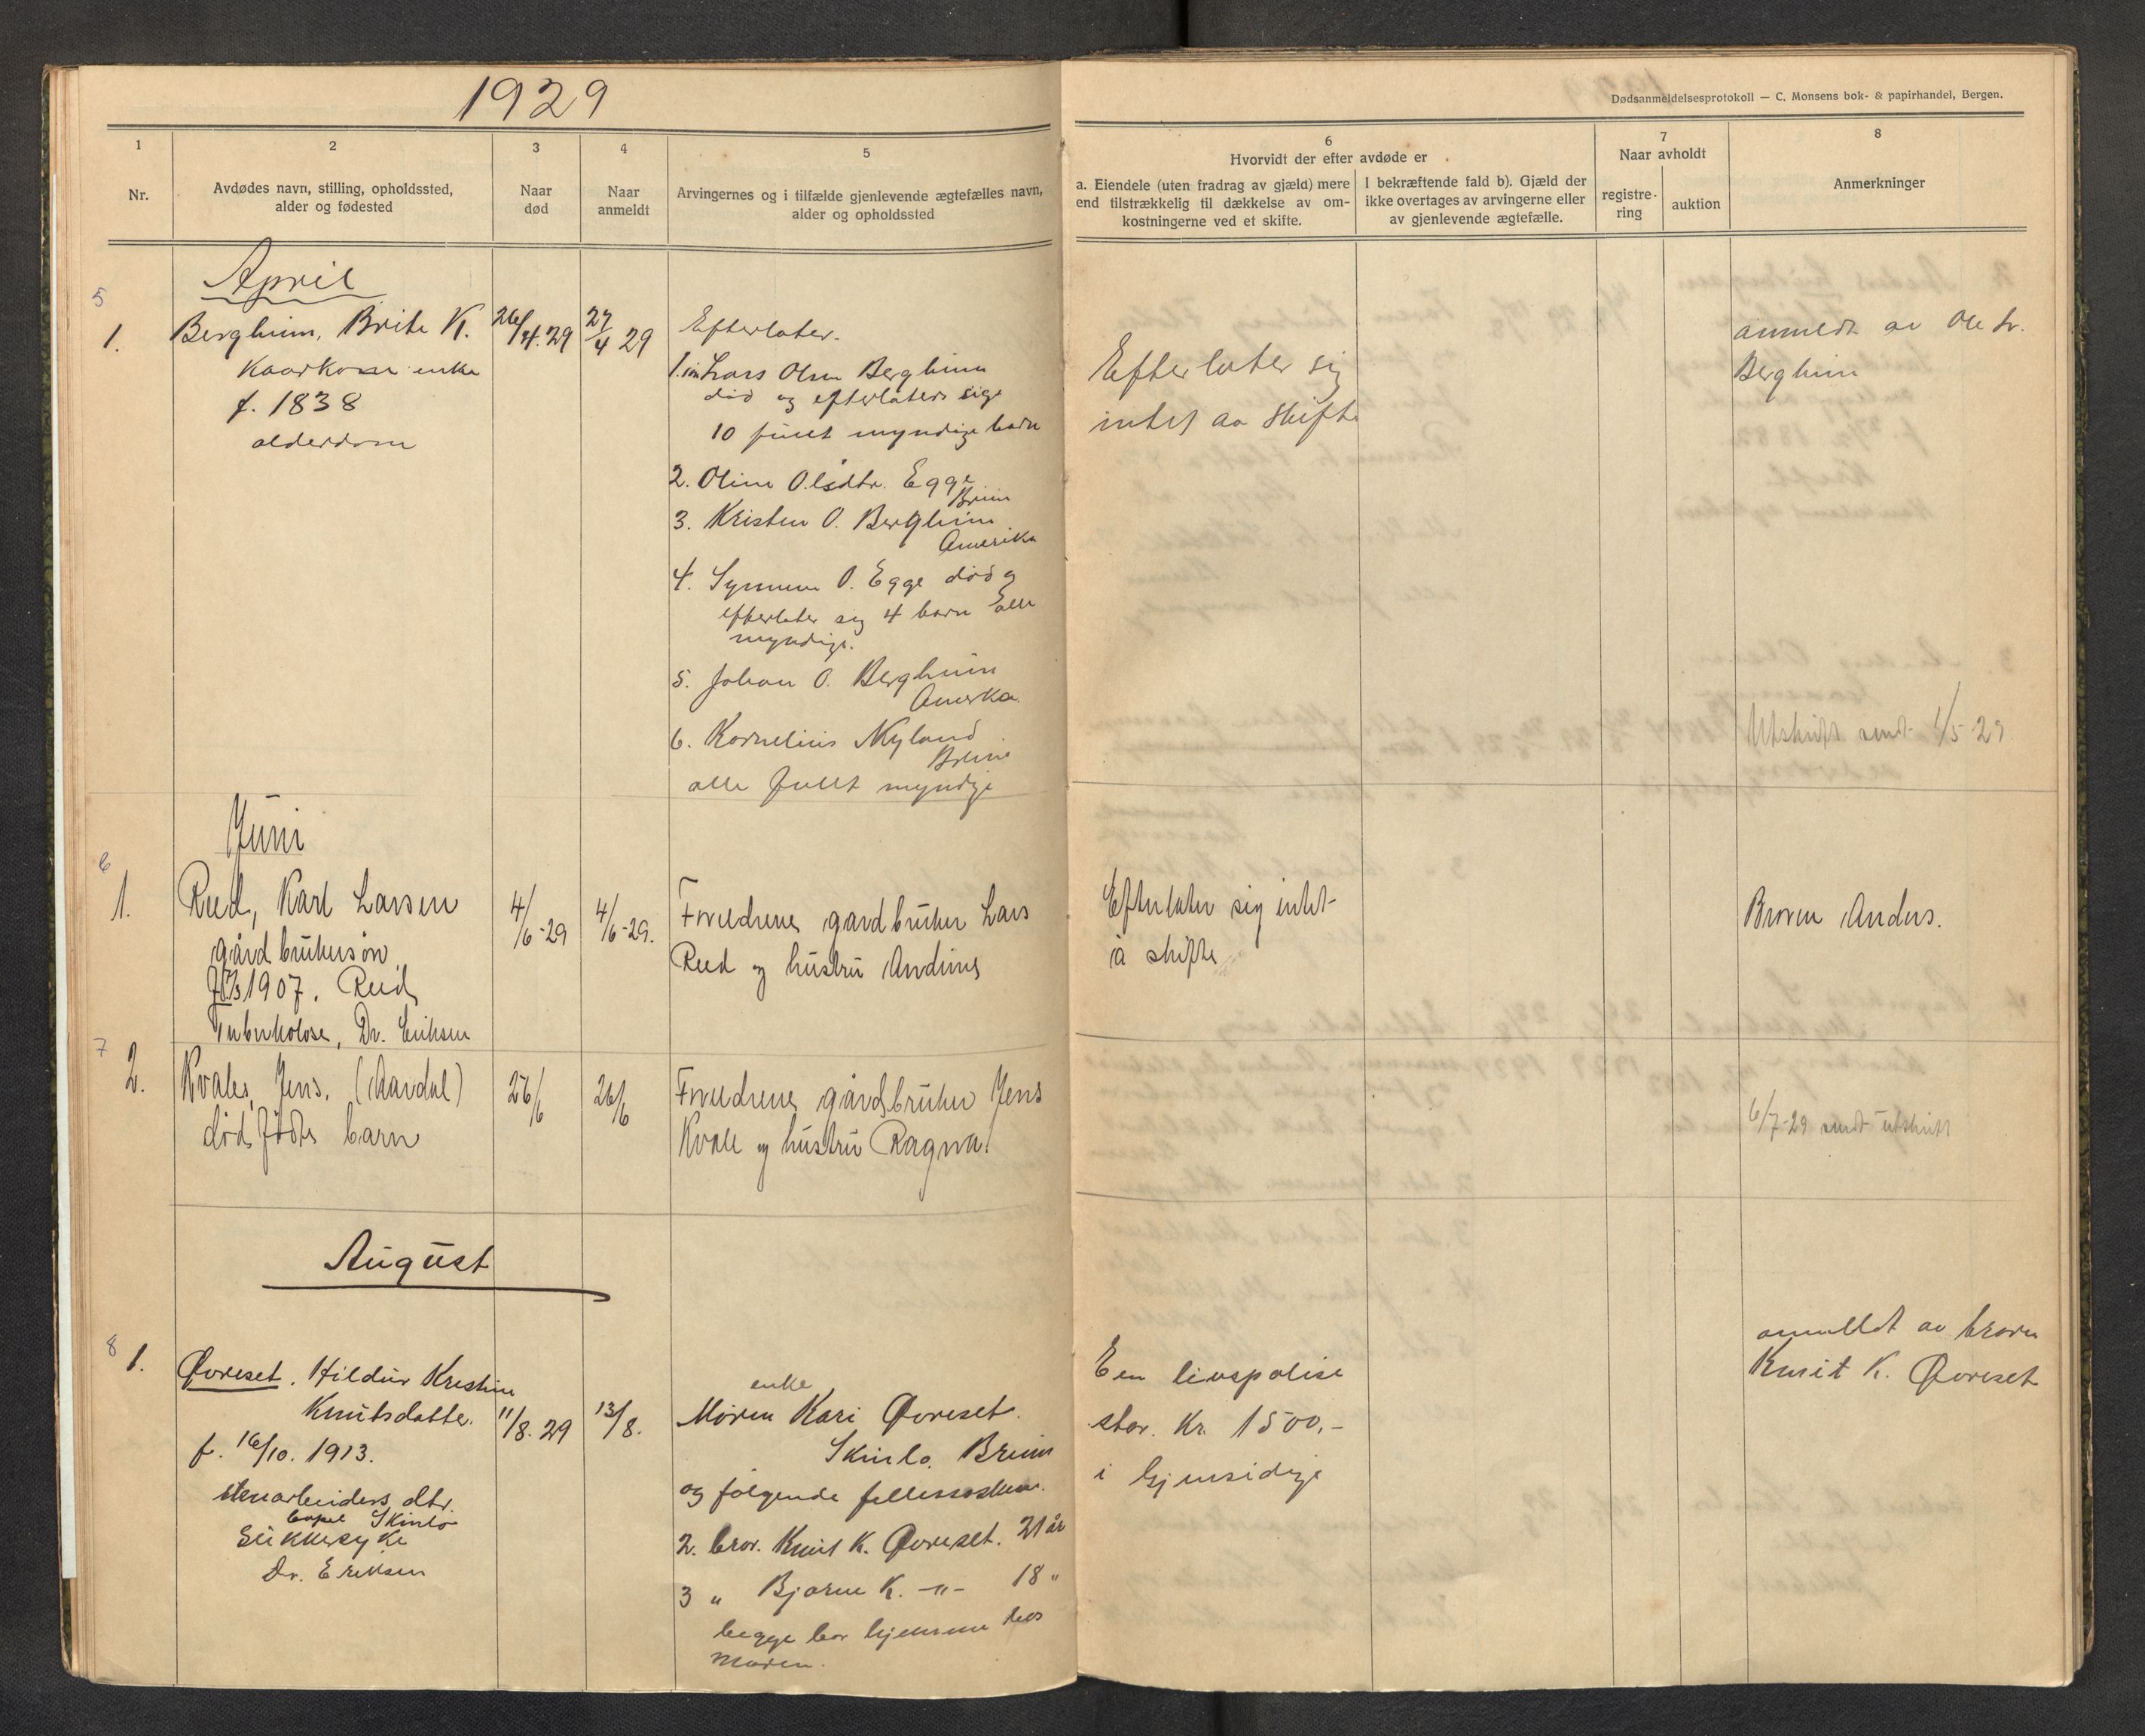 1929
Dødsanmeldelsesprotokoll — C. Monsens bok- & papirhandel, Bergen.
1
Nr.
2
Avdødes navn, stilling, opholdssted,
alder og fødested
3
Naar
død
4
Naar
anmeldt
5
Arvingernes og i tilfælde gjenlevende ægtefælles navn,
alder og opholdssted
6
Hvorvidt der efter avdøde er
a. Eiendele (uten fradrag av gjæld) mere
end tilstrækkelig til dækkelse av om-
kostningerne ved et skifte.
I bekræftende fald b). Gjæld der
ikke overtages av arvingerne eller
av gjenlevende ægtefælle.
7
Naar avholdt
registre-
ring
auktion
8
Anmerkninger
April
5
1.
Berghim, Brite K.
Kaarkone enke
f. 1838
alderdom
26/4.29
27/4 29
Efterlater.
1. Lars Olsen Berghim
død og efterlater sig
10 fullt myndige barn
2. Oline Olsdtr. Egge
Breim
3. Kristen O. Berghim
Amerika
4. Synneve O. Egge død og
efterlater sig 4 barn alle
myndige.
5. Johan O. Berghim
Amerka.
6. Kornelius Myland
Breim
alle fullt myndige
Efterlater sig
intet aa skifte
anmeldt av Ole
Berghim
Utskrift sendt 1/5-29
Juni
6
1.
Reed, Karl Larsen
gårdbrukersøn
1907. Reed
Tuberkolose, Dr. Eriksen
4/6-29
4/6-29.
Foreldrene gardbruker Lars
Reed og hustru Andrine
Efterlater sig intet
å skifte
Broren Anders.
7
2.
Kvale, Jens. (Aardal)
død født barn
26/6
26/6
Foreldrene gårdbruker Jens
Kvale og hustru Ragna.
6/7-29 sendt utskrift
August
8
1.
Øvreset. Hildur Kristine
Knutsdatter.
f. 16/10. 1913.
stenarbeiders dtr.
Skinlo
Sukkersyke
Dr. Eriksen
11/8.29
13/8.
enke
Moren Kari Øvreset.
Skinlo. Breim
og følgende fellessøsken.
2. bror. Knut K. Øvreset. 21 år
3 " Bjarne K. -"- 18 "
begge bor hjemme hos
moren.
En livspolise
stor. Kr. 1500,-
i Gjensidige
anmeldt av broren
Knut K. Øvreset